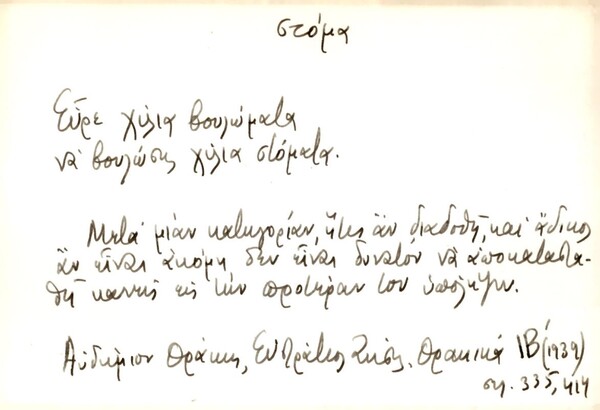 στόμα
Εὗρε χίλια βουλώματα
νὰ βουλώσῃς χίλια στόματα.
Μετὰ μιὰν κατηγορίαν, ἥτις ἂν διαδοθῇ, καὶ ἄδικος
ἂν εἶναι ἀκόμη δὲν εἶναι δυνατὸν νὰ ἀποκαταστα-
θῇ κανεὶς εἰς τὴν προτέραν του ὑπόληψιν.
Αὐδήμιον Θράκης, Εὐστράτιος Ζήσης, Θρακικά ΙΒ´ (1939)
ση. 335, 414